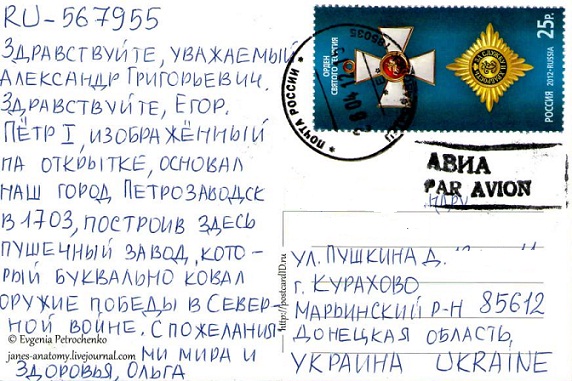 RU-567955
ЗДРАВСТВУЙТЕ, УВАЖАЕМЫЙ
АЛЕКСАНДР ГРИГОРЬЕВИЧ.
ЗДРАВСТВУЙТЕ, ЕГОР.
ПЁТР I, ИЗОБРАЖЁННЫЙ
НА ОТКРЫТКЕ, ОСНОВАЛ
НАШ ГОРОД ПЕТРОЗАВОДСК
В 1703, ПОСТРОИВ ЗДЕСЬ
ПУШЕЧНЫЙ ЗАВОД, КОТО-
РЫЙ БУКВАЛЬНО КОВАЛ
ОРУЖИЕ ПОБЕДЫ В СЕВЕР-
НОЙ ВОЙНЕ. С ПОЖЕЛАНИЯ-
МИ МИРА И
ЗДОРОВЬЯ, ОЛЬГА
© Evgenia Petrochenko
janes-anatomy.livejournal.com
http://postcardID.ru
ОРДЕН
СВЯТОГО ГЕОРГИЯ
25р.
РОССИЯ 2012·RUSSIA
ЗА СЛУЖБУ
ПОЧТА РОССИИ
АВИА
PAR AVION
УЛ. ПУШКИНА Д.
Г. КУРАХОВО
МАРЬИНСКИЙ Р-Н 85612
ДОНЕЦКАЯ ОБЛАСТЬ,
УКРАИНА UKRAINE